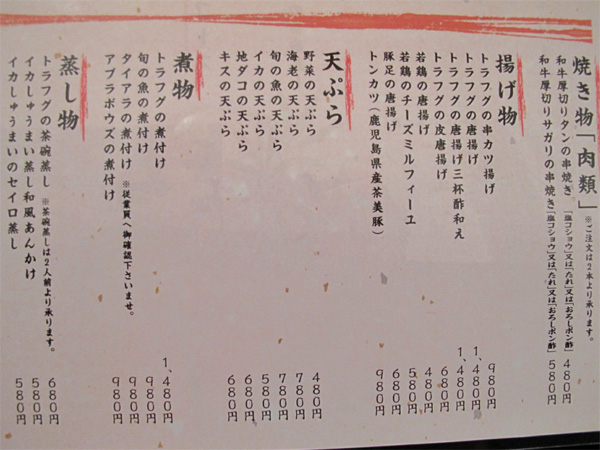 焼き物「肉類」 ※ご注文は2本より承ります。
和牛厚切りタンの串焼き 「塩コショウ」又は「たれ」又は「おろしポン酢」 480円
和牛厚切りサガリの串焼き 「塩コショウ」又は「たれ」又は「おろしポン酢」 580円
揚げ物
トラフグの串カツ揚げ 980円
トラフグの唐揚げ 1,480円
トラフグの唐揚げ三杯酢和え 1,480円
トラフグの皮唐揚げ 680円
若鶏の唐揚げ 480円
若鶏のチーズミルフィーユ 580円
豚足の唐揚げ 680円
トンカツ(鹿児島県産茶美豚) 980円
天ぷら
野菜の天ぷら 480円
海老の天ぷら 780円
旬の魚の天ぷら 780円
イカの天ぷら 580円
地ダコの天ぷら 680円
キスの天ぷら 680円
煮物
トラフグの煮付け 1,480円
旬の魚の煮付け 980円
タイアラの煮付け ※従業員へ御確認下さいませ。 980円
アブラボウズの煮付け 980円
蒸し物
トラフグの茶碗蒸し ※茶碗蒸しは2人前より承ります。 680円
イカしゅうまい蒸し和風あんかけ 580円
イカしゅうまいのセイロ蒸し 580円